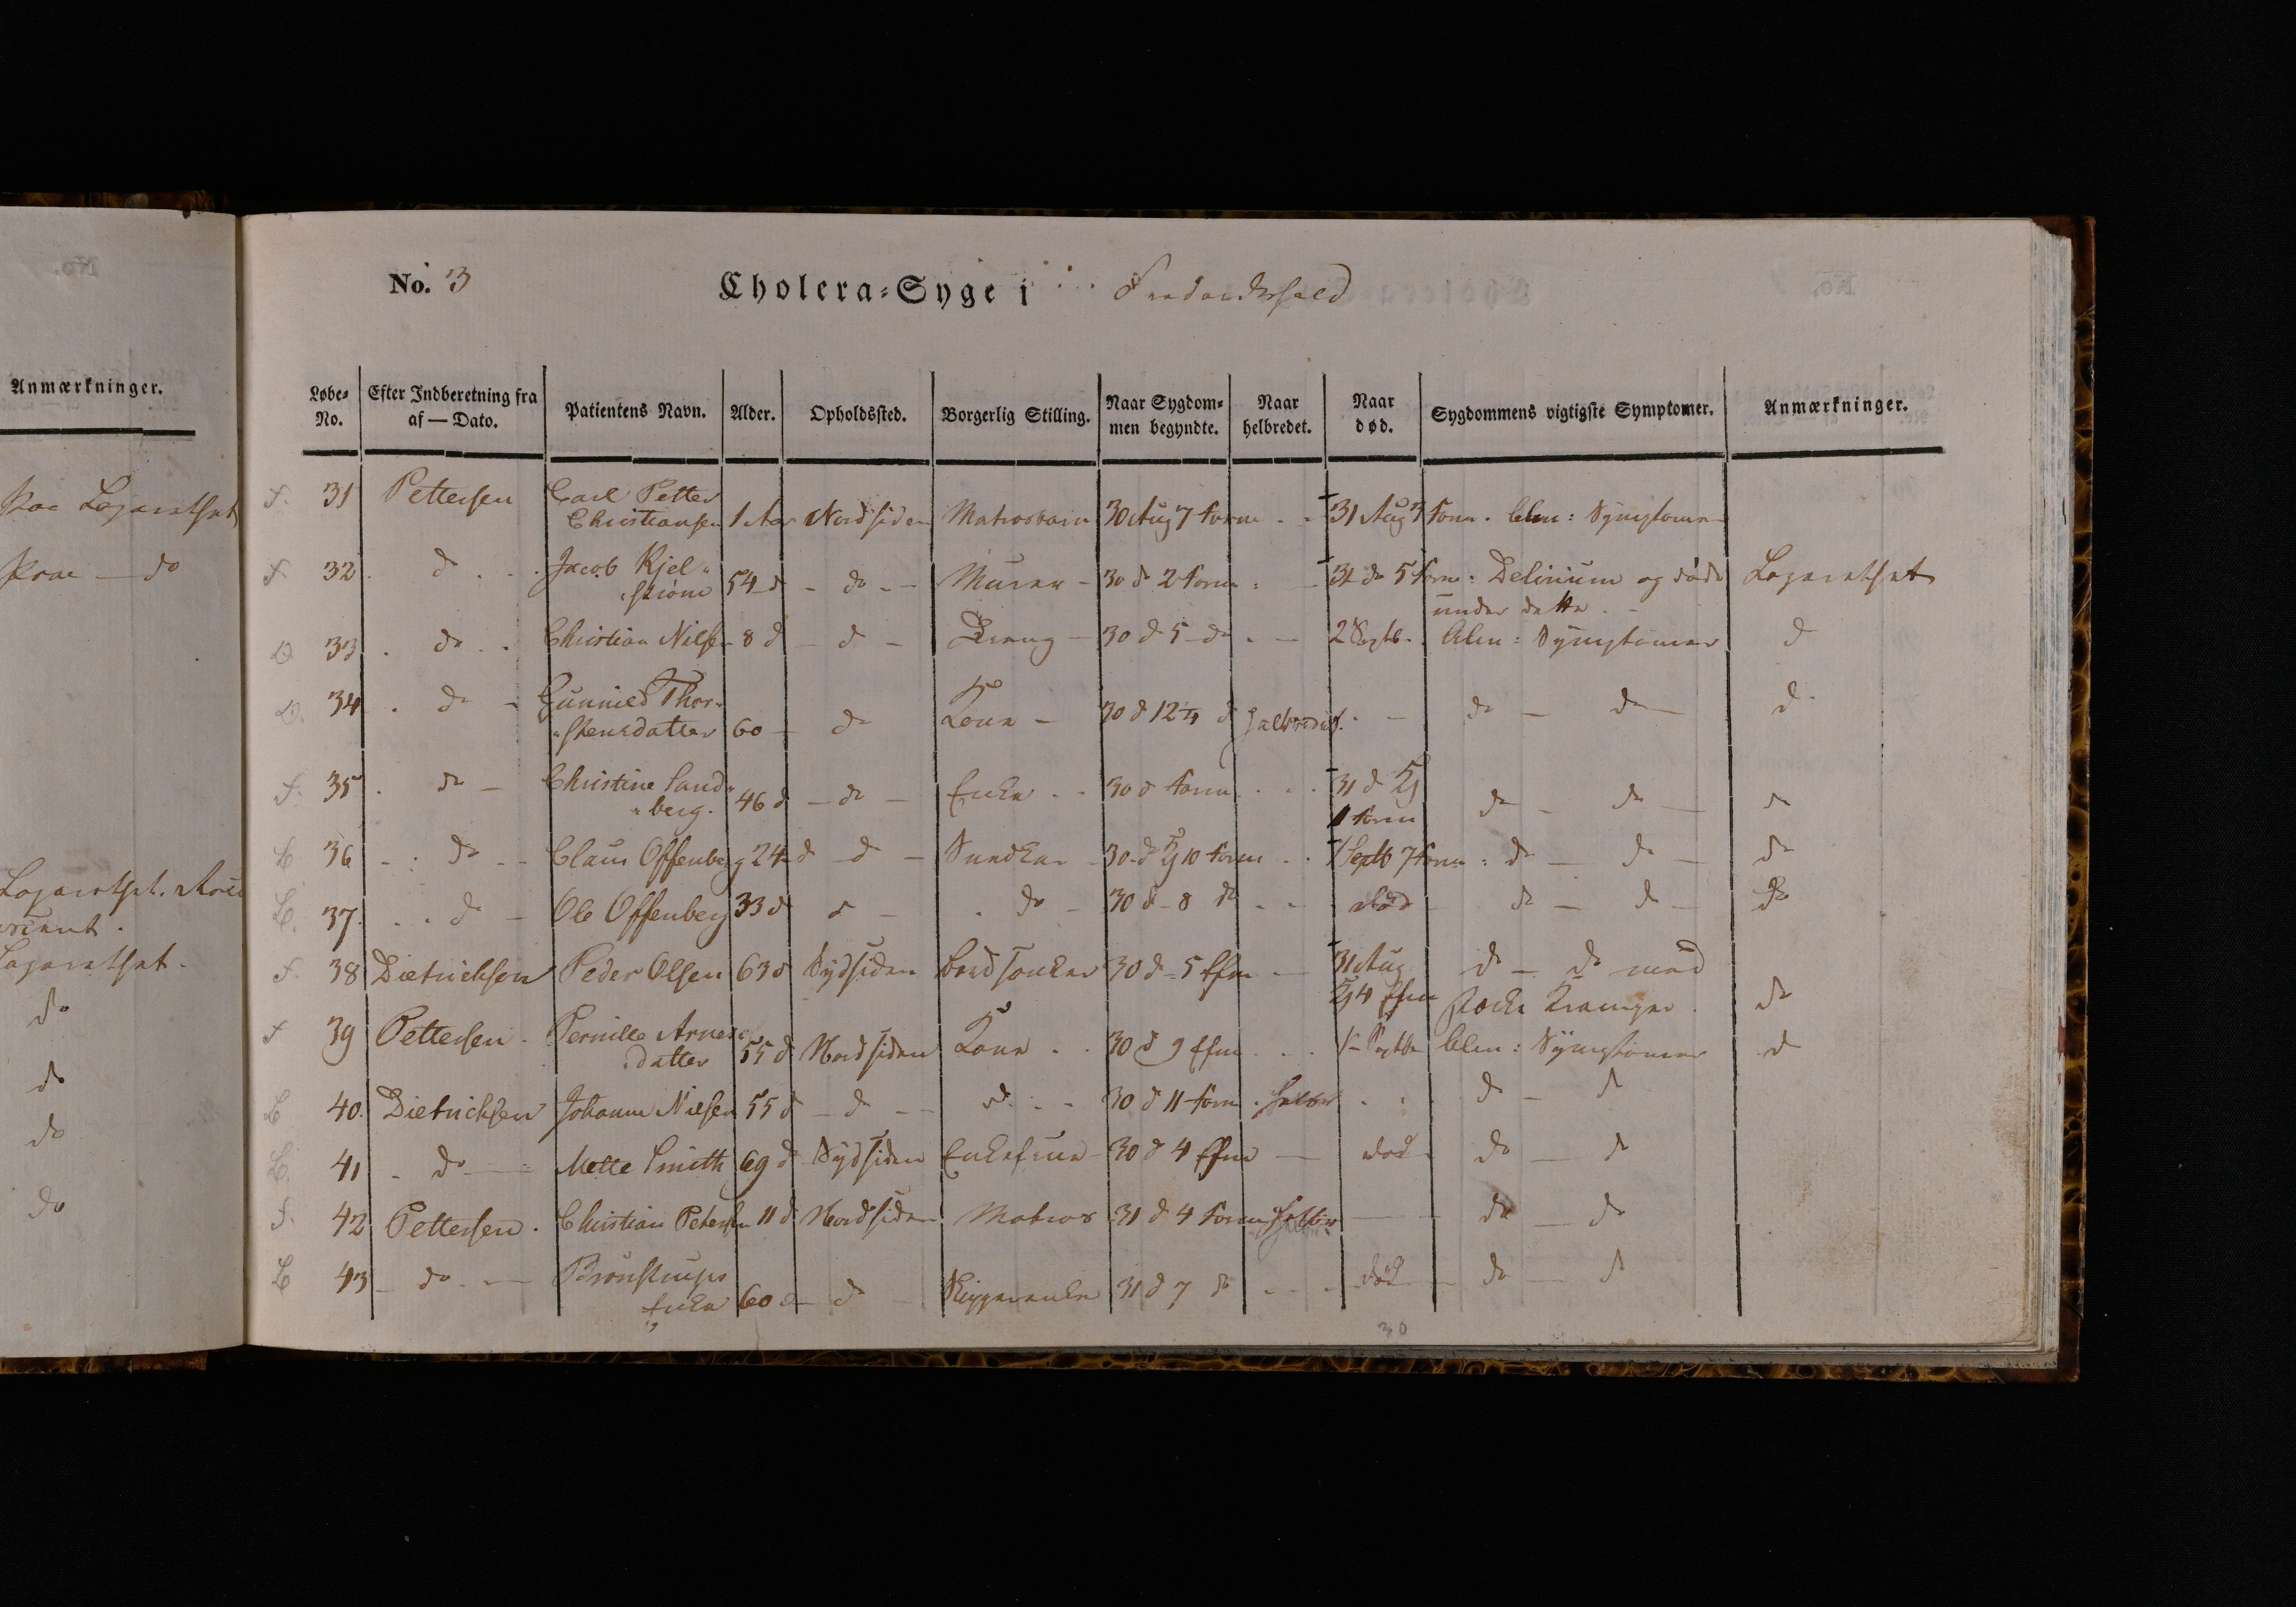 Anmærkninger.
Lazarethet
do
Lazarethet.
Lazarethet.
do
do
do
do
No. 3 Cholera-Syge i Fredrikshald
Løbe-No. Efter Indberetning fra af — Dato. Patientens Navn. Alder. Opholdssted. Borgerlig Stilling. Naar Sygdommen begyndte. Naar helbredet. Naar død. Sygdommens vigtigste Symptomer. Anmærkninger.
F. 31 Pettersen Carl Petter
Christiansen 1 Aar Nordsiden Matrosbarn 30 Aug 7 Form - - 31 Aug 3 Form. Alm: Symptomer
F. 32 d Jacob Kjel-
strøm 54 d - do - - Murer - 30 d 2 Form - 31 do 5 Form: Delirium og døde Lazarethet
under dette.
D 33 . do . . Christian Nilsen 8 d - d - Dreng - 30 d 5 do - - 2 Septb. Alm: Symptomer d
D. 34 . do - Gunnild Thor-
stensdatter 60 - do Kone - 30 d 12 d helbredet. - do - do - d
F. 35 . do - Christine Sand-
berg. 46 d - do - Enke - - 30 d Form . . . 31 d Kl
1 Form do - do - d
C 36 - . do - - Claus Offenberg 24 d - d - Snedker 30 d Kl 10 Form . . 1 Septb 7 Form: d - do - do
C. 37. . . d - Ole Offenberg 33 d d - . do - 30 d - 8 do - - død do - do - do
F. 38 Dietrichsen Peder Olsen 63 d Sydsiden 30 d - 5 Efm - 31 Aug do - do med
Kl 4 Efm Kramper. do
F 39 Pettersen - Pernille Arnes-
datter 55 d Nordsiden Kone . . 30 d 9 Efm . . . 1 Septbr Alm: Symptomer d
C 40. Dietrichsen Johanne Nilsen 55 d - d - - d. - - 30 d 11 Form . helbr . . do - d
C. 41 - do - Mette Smith 69 d Sydsiden Enkefrue - 30 d 4 Efm - død - do - d
F. 42 Pettersen. Christian Petersen 11 d Nordsiden Matros 31 d 4 Form helbr - do - do
C 43 - do - Brønstrups
Enke 60 d - d - Skipperenke 31 d 7 do - - - død - do - d
30